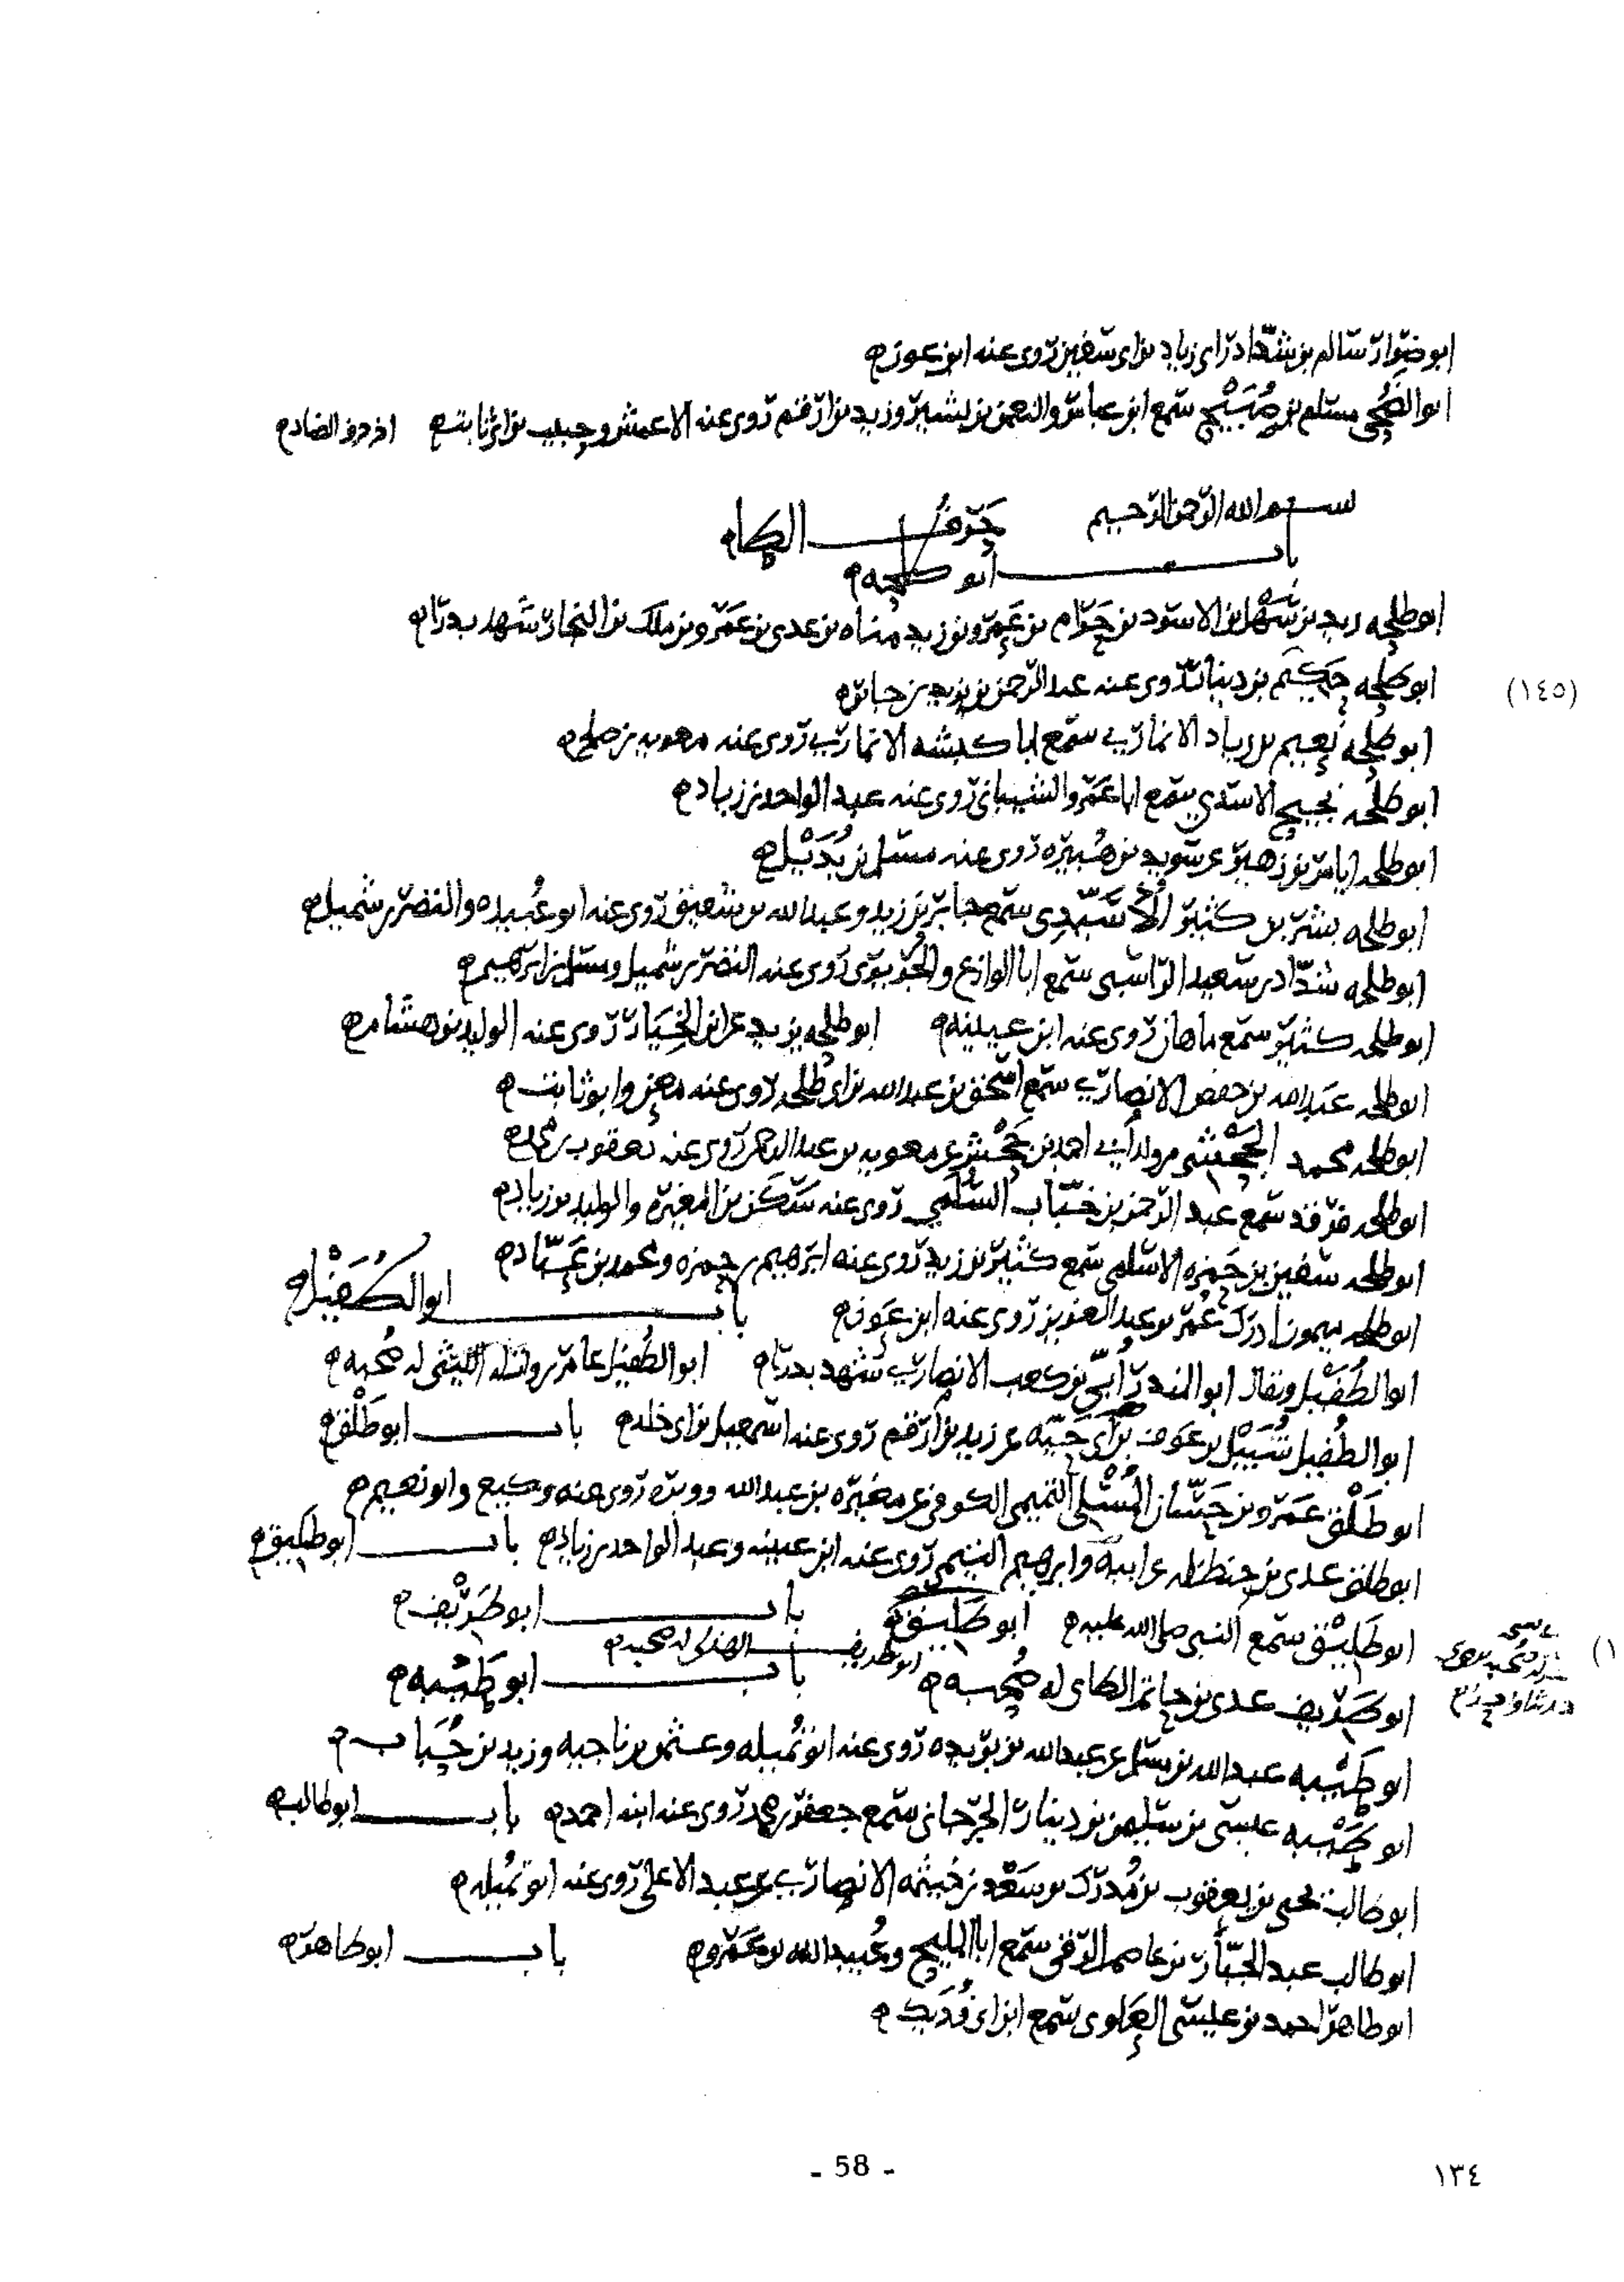 ابو سالم بن شداد روى عنه ابن عون
ابو الضحى مسلم بن صبيح سمع ابن عباس والنعمن بن بشير وزيد بن ارقم روى عنه الاعمش وحبيب بن ابى ثابت اخر حرف الضاد
بسم الله الرحمن الرحيم حرف الطاء
باب ابو طلحه
ابو طلحه زيد بن سهل بن الاسود بن حرام بن عمرو بن زيد مناه بن عدى بن عمرو بن ملك بن النجار شهد بدرا
ابو طلحه حكيم بن دينار روى عنه عبد الرحمن بن يزيد بن جابر
(١٤٥)
ابو طلحه نعيم بن زياد الانمارى سمع ابا كبشه الانمارى روى عنه معويه بن صلح
ابو طلحه نجيح الاسدى سمع ابا عمرو الشيبانى روى عنه عبد الواحد بن زياد
ابو طلحه اياس بن زهير عن سويد بن هبيره روى عنه مسلم بن بديل
ابو طلحه بشر بن كثير الاسيدى سمع جابر بن زيد وعبد الله بن شقيق روى عنه ابو عبيده والنضر بن شميل
ابو طلحه شداد بن سعيد الراسبى سمع ابا الوازع والجريرى روى عنه النضر بن شميل ومسلم بن ابرهيم
ابو طلحه كثير سمع ماهان روى عنه ابن عيينه ابو طلحه يزيد عن ابن الخيار روى عنه الوليد بن هشام
ابو طلحه عبد الله بن حفص الانصارى سمع اسحق بن عبد الله بن ابى طلحه روى عنه معن وابو ثابت
ابو طلحه محمد الجحشى مولى ابى احمد بن جحش عن معويه بن عبد الله روى عنه يعقوب بن محمد
ابو طلحه فرقد سمع عبد الرحمن بن خباب السلمى روى عنه سكن بن المغيره والوليد بن زياد
ابو طلحه سفين بن حمزه الاسلمى سمع كثير بن زيد روى عنه ابرهيم بن حمزه ومحمد بن عباد
ابو طلحه ميمون ادرك عمر بن عبد العزيز روى عنه ابن عون باب ابو الطفيل
ابو الطفيل ويقال ابو المنذر ابى بن كعب الانصارى شهد بدرا ابو الطفيل عامر بن واثله الليثى له صحبه
ابو الطفيل شبيل بن عوف بن ابى حيه عن زيد بن ارقم روى عنه اسمعيل بن ابى خلد باب ابو طلق
ابو طلق عمرو بن حسان المسلى التميمى الكوفى عن مغيره بن عبد الله ووبره روى عنه وكيع وابو نعيم
ابو طلق عدى بن حنظله عن ابيه وابرهيم التيمى روى عنه ابن عيينه وعبد الواحد بن زياد باب ابو طليق
ابو طليق سمع النبى صلى الله عليه ابو طليق باب ابو طريف
ابو طريف الهذلى له صحبه
ابو طريف عدى بن حاتم الطاى له صحبه باب ابو طيبه
ابو طيبه عبد الله بن مسلم عن عبد الله بن بريده روى عنه ابو تميله وعثمن بن ناجيه وزيد بن حباب
ابو طيبه عيسى بن سليمن بن دينار الجرجانى سمع جعفر بن محمد روى عنه ابنه احمد باب ابو طالب
ابو طالب يحيى بن يعقوب بن مدرك بن سعد بن خيثمه الانصارى عن عبد الاعلى روى عنه ابو تميله
ابو طالب عبد الجبار بن عاصم الرقى سمع ابا المليح وعبيد الله بن عمرو باب ابو طاهر
ابو طاهر احمد بن عيسى العلوى سمع ابن ابى فديك
- 58 -
١٣٤